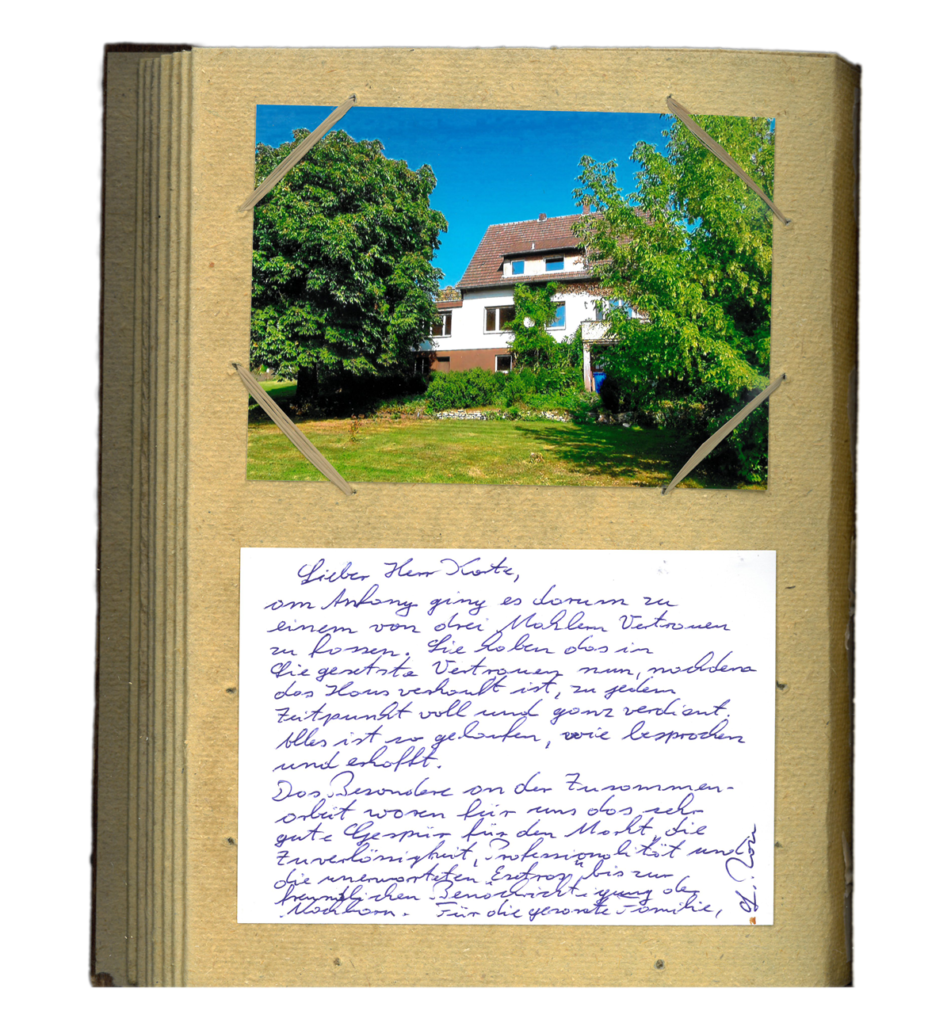 Lieber Herr Korte,
am Anfang ging es darum zu
einem von drei Maklern Vertrauen
zu fassen. Sie haben das in
Sie gesetzte Vertrauen nun, nachdem
das Haus verkauft ist, zu jedem
Zeitpunkt voll und ganz verdient.
Alles ist so gelaufen, wie besprochen
und erhofft.
Das Besondere an der Zusammen-
arbeit waren für uns das sehr
gute Gespür für den Markt, die
Zuverlässigkeit, Professionalität und
die unerwarteten Extras, bis zur
freundlichen Benachrichtigung der
Nachbarn. Für die gesamte Familie,